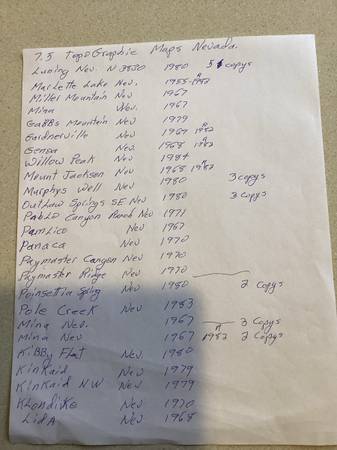 7.5 TopoGraphic Maps Nevada.
Luning Nev. N 3830 1980 5 copys
Marlette Lake Nev. 1955-1982
Miller Mountain Nev 1967
Mina Nev. 1967
Gabbs Mountain Nev 1979
Gardnerville Nev 1969 R 1982
Genoa Nev. 1968 R 1982
Willow Peak Nev 1984
Mount Jackson Nev 1968 R 1982
Murphys Well Nev 1980 3 copys
OutLaw Springs SE Nev 1980 3 copys
Pablo Canyon Ranch Nev 1971
Pamlico Nev 1967
Panaca Nev 1970
Paymaster Canyon Nev 1970
Paymaster Ridge Nev 1970
Poinsettia Spring Nev 1980 2 Copys
Pole Creek Nev 1983
Mina Nev. 1967 3 Copys
Mina Nev 1967 R 1982 2 Copys
KiBBy Flat Nev. 1980
KinKaid Nev 1979
KinKaid NW Nev 1979
KLondiKe Nev 1970
LidA Nev 1968